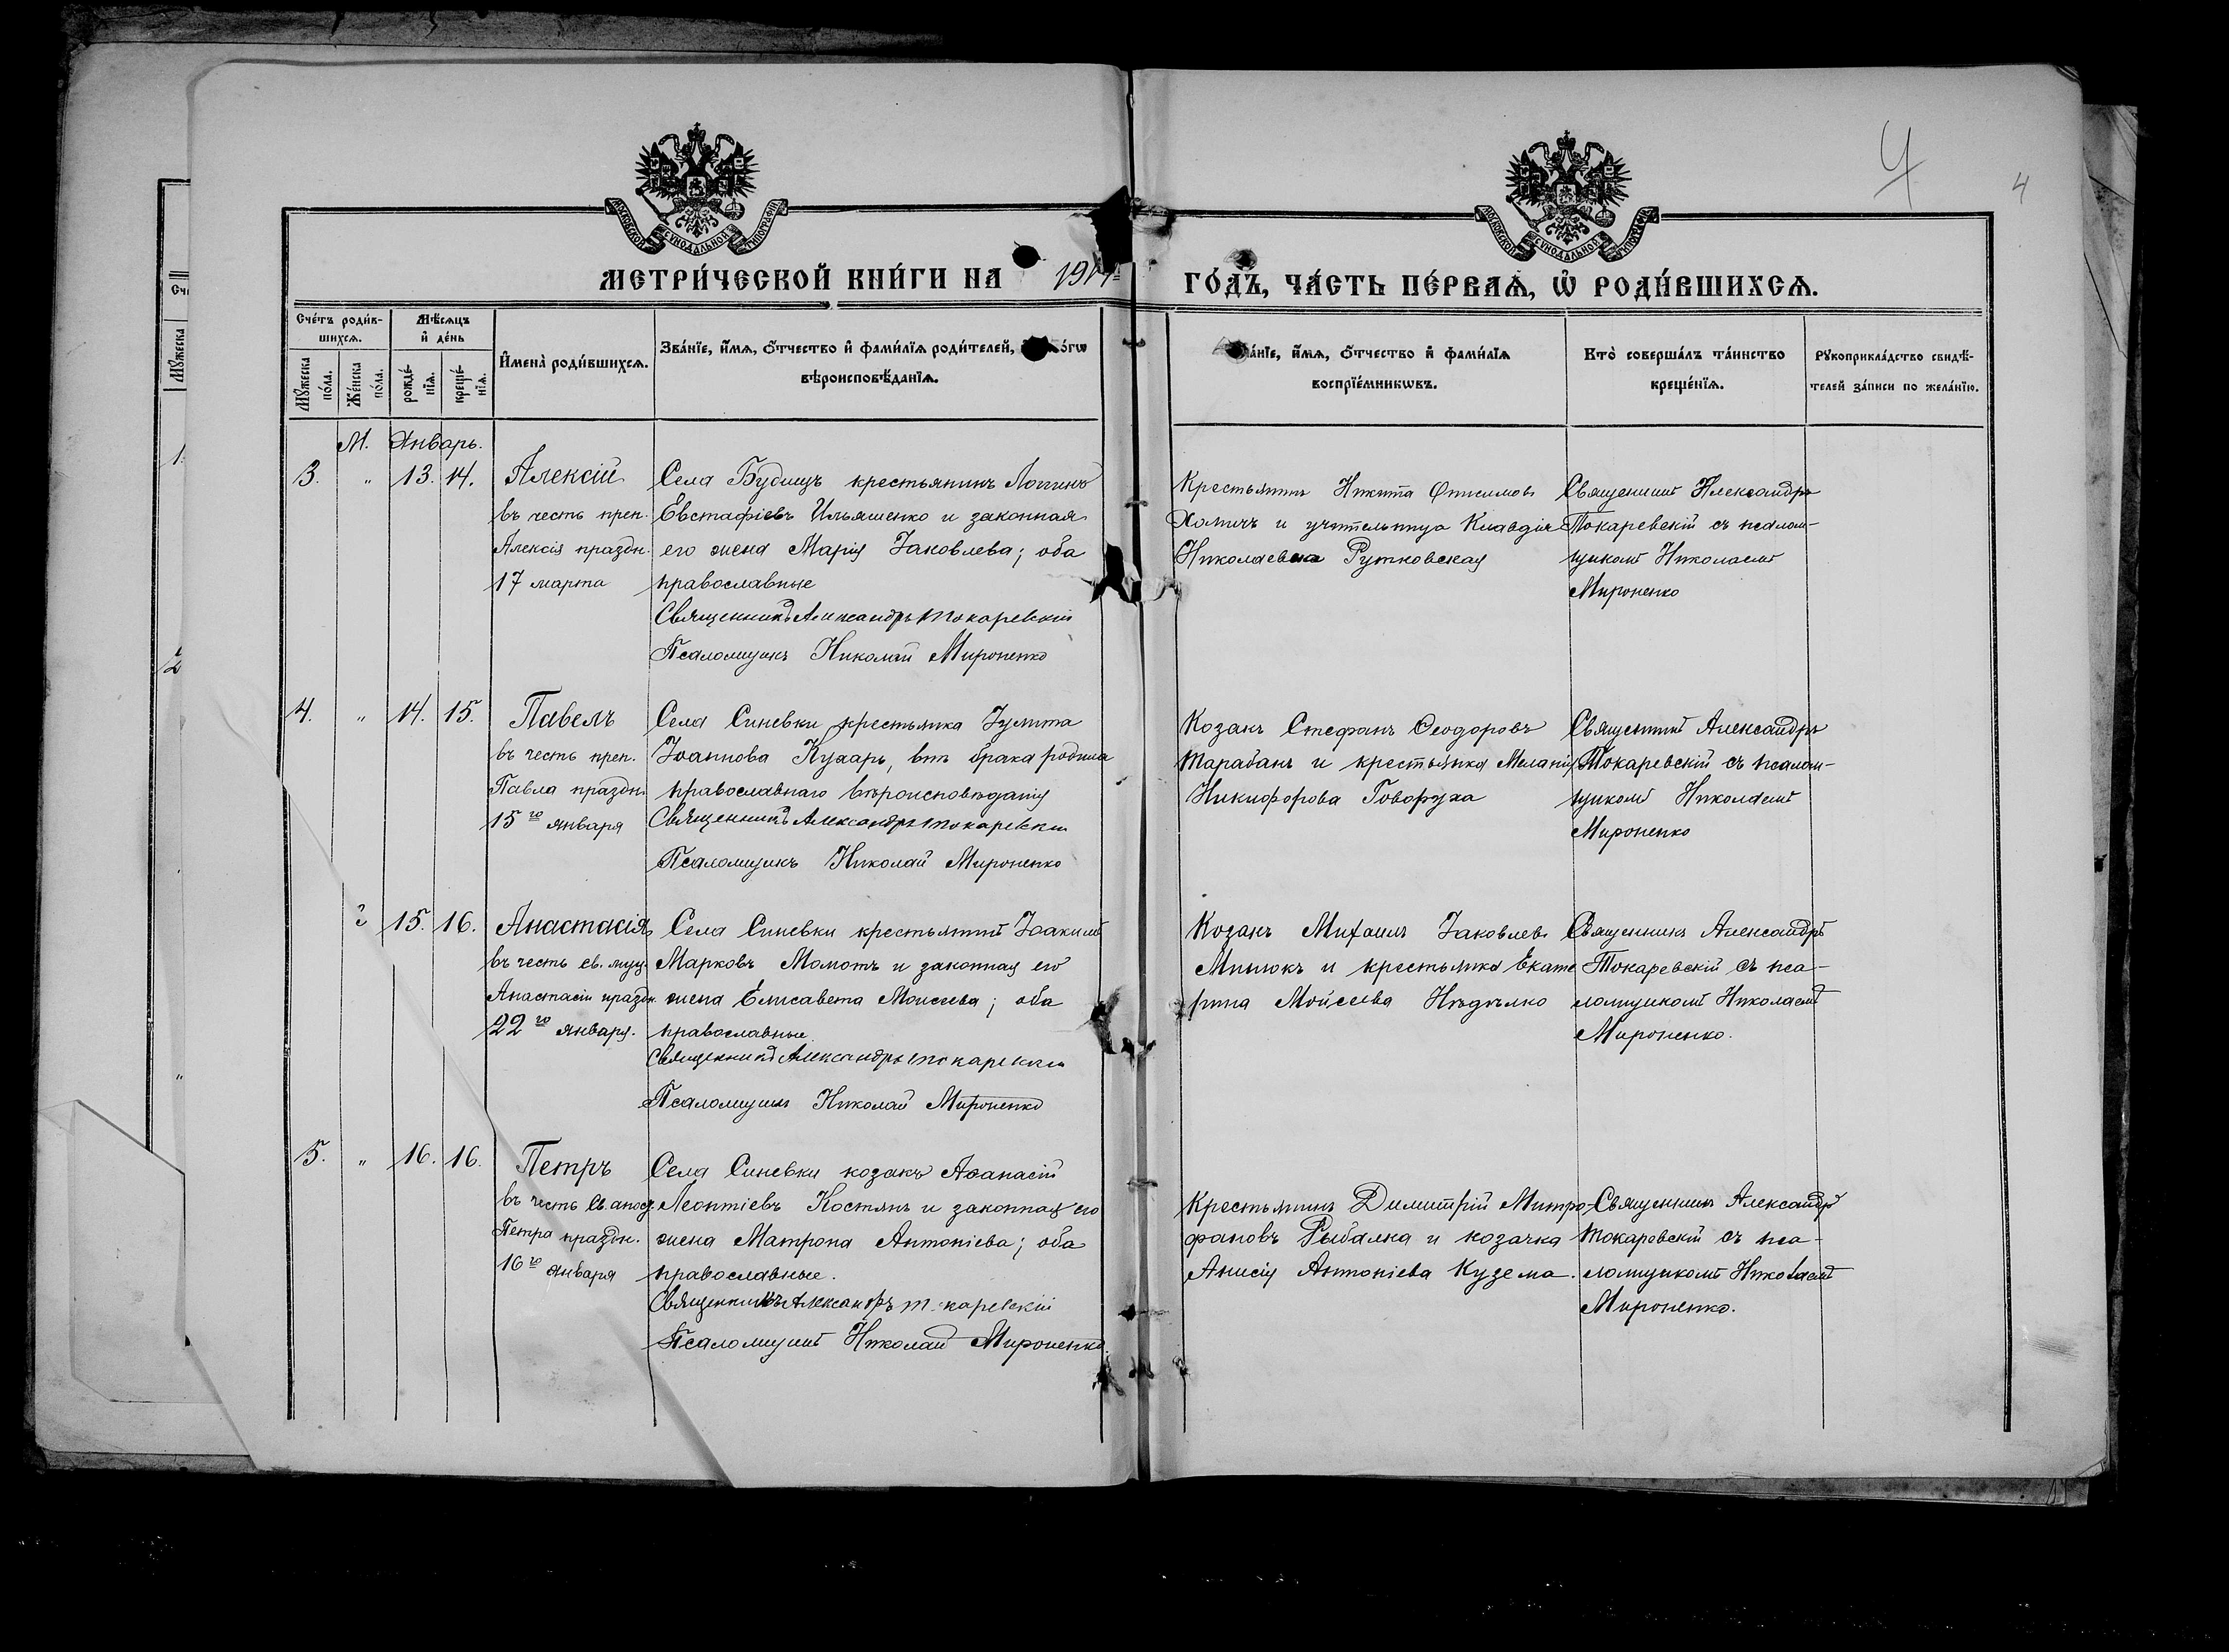 4
4
МОСКОВСКОЙ СѴНОДАЛЬНОЙ ТИПОГРАФІИ
МОСКОВСКОЙ СѴНОДАЛЬНОЙ ТИПОГРАФІИ
МЕТРИ́ЧЕСКОЙ КНИ́ГИ НА
ГО́ДЪ, ЧА́СТЬ ПЕ́РВАѦ, Ѡ҆ РОДИ́ВШИХСѦ.
Сче́тъ роди́в-
шихсѧ.
Мꙋжеска
по́ла.
Же́нска
по́ла.
Мѣ́сѧцъ
и҆ де́нь
рожде́-
нїѧ.
креще́-
нїѧ.
И҆мена̀ роди́вшихсѧ.
Зва́нїе, и҆́мѧ, ѻ҆́тчество и҆ фами́лїѧ роди́телей,
вѣроисповѣ́данїѧ.
и҆́мѧ, ѻ҆́тчество и҆ фами́лїѧ
воспрїе́мникѡвъ.
Кто̀ соверша́лъ та́инство
креще́нїѧ.
Рꙋкоприкла́дство свидѣ́-
телей за́писи по жела́нїю.
М. Январь.
3. " 13. 14.
Алексій
въ честь преп.
Алексія праздн.
17 марта
Села Будищъ крестьянинъ Логгинъ
Евстафіевъ Ильяшенко и законная
его жена Марія Іаковлева; оба
православные
Священникъ Александръ Токаревскій
Псаломщикъ Николай Мироненко
Крестьянинъ Никита Онисимовъ
и учительница Клавдія
Николаевна Рутковская
Священникъ Александръ
Токаревскій съ псалом-
щикомъ Николаемъ
Мироненко
4. " 14. 15.
Павелъ
въ честь преп.
Павла праздн.
15го января
Села Синевки крестьянка Іулита
Іоаннова Кухарь, внѣ брака родила
православнаго вѣроисповѣданія
Священникъ Александръ Токаревскій
Псаломщикъ Николай Мироненко
Козакъ Стефанъ Ѳеодоровъ
Тарабанъ и крестьянка Меланія
Никифорова Говоруха
Священникъ Александръ
Токаревскій съ псалом-
щикомъ Николаемъ
Мироненко
2 15. 16.
Анастасія
въ честь св. муч.
Анастасіи праздн.
22го января.
Села Синевки крестьянинъ Іоакимъ
Марковъ Момотъ и законная его
жена Елисавета Моисеева; оба
православные.
Священникъ Александръ Токаревскій
Псаломщикъ Николай Мироненко
Козакъ Михаилъ Іаковлевъ
Минюкъ и крестьянка Екате
рина Мойсеева Недѣлко
Священникъ Александръ
Токаревскій съ пса-
ломщикомъ Николаемъ
Мироненко.
5. " 16. 16.
Петръ
въ честь св. апос.
Петра праздн.
16го января
Села Синевки козакъ Аѳанасій
Леонтіевъ Костянъ и законная его
жена Матрона Антоніева; оба
православные.
Священникъ Александръ Токаревскій
Псаломщикъ Николай Мироненко.
Крестьянинъ Димитрій Митро-
фановъ Рыбалка и козачка
Анисія Антоніева Кузема.
Священникъ Александръ
Токаревскій съ пса-
ломщикомъ Николаемъ
Мироненко.